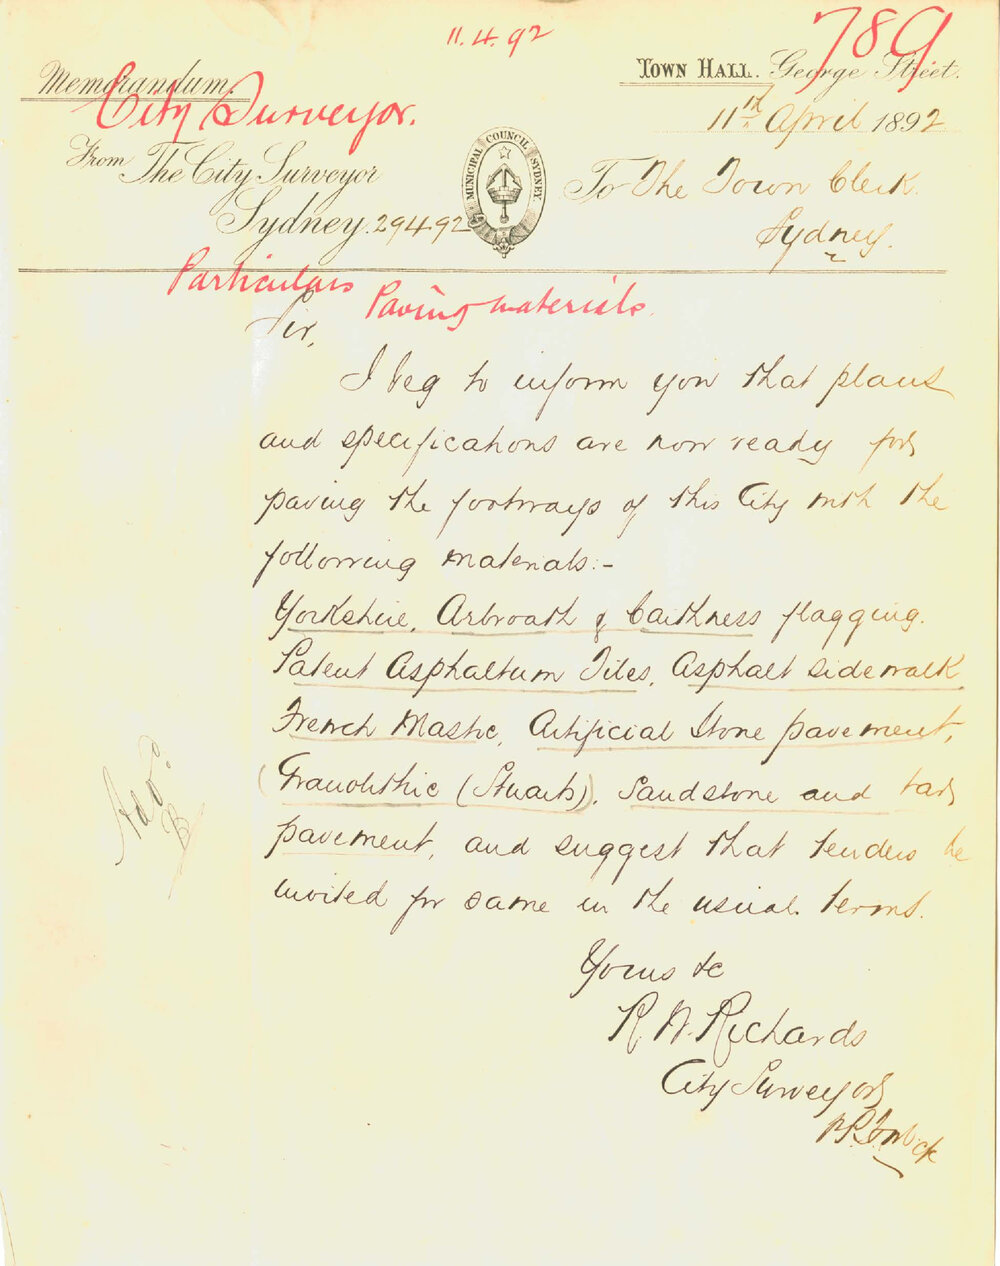 11.4.92
789
Memorandum.
TOWN HALL. George Street.
City Surveyor.
11th April 1892
From The City Surveyor
MUNICIPAL COUNCIL SYDNEY
To The Town Clerk.
Sydney. 29492
Sydney.
Particulars Paving materials.
Sir,
I beg to inform you that plans
and specifications are now ready for
paving the footways of this City with the
following materials:-
Yorkshire, Arbroath & Caithness flagging.
Patent Asphaltum Tiles, Asphalt sidewalk,
French Mastic, Artificial Stone pavement,
(Granolithic (Stuarts), Sandstone and tar
pavement, and suggest that tenders be
invited for same in the usual terms.
Yours &c
R. W. Richards
City Surveyor